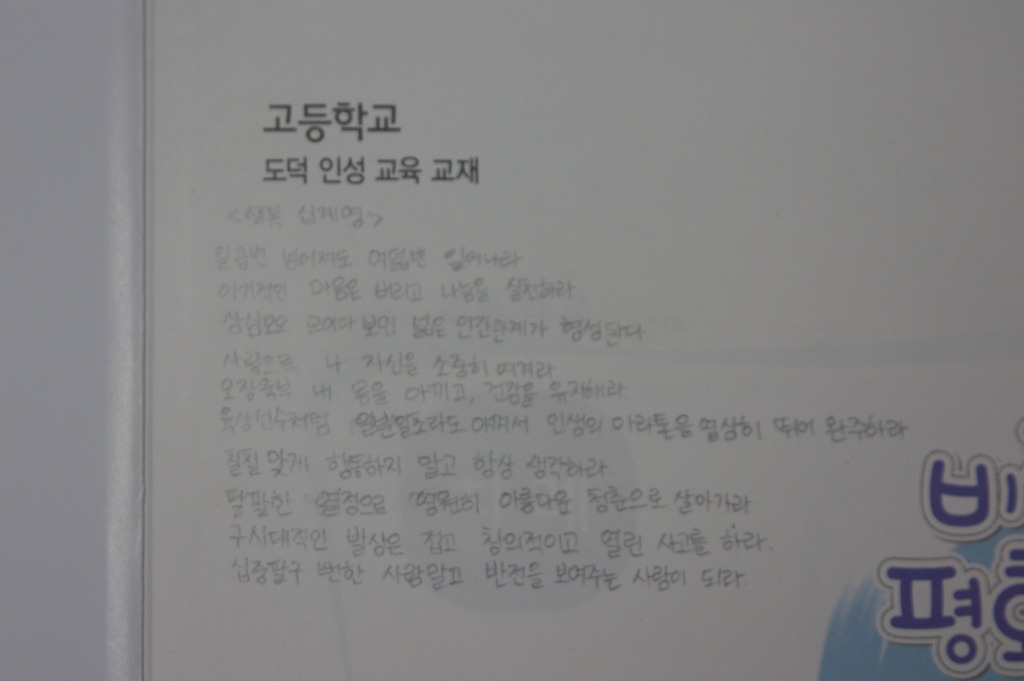 고등학교
도덕 인성 교육 교재
<행복 십계명>
일곱번 넘어져도 여덟번 일어나라
이기적인 마음은 버리고 나눔을 실천하라
삼삼오오 모이다보면 넓은 인간관계가 형성된다.
사랑으로 나 자신을 소중히 여겨라
오장육부 내 몸을 아끼고, 건강을 유지해라
육상선수처럼 일분일초라도 아껴서 인생의 마라톤을 열심히 뛰어 완주하라
칠칠맞게 행동하지 말고 항상 생각하라
팔팔한 열정으로 영원히 아름다운 청춘으로 살아가라
구시대적인 발상은 접고 창의적이고 열린 사고를 하라.
십중팔구 뻔한 사람말고 반전을 보여주는 사람이 되라.
평화